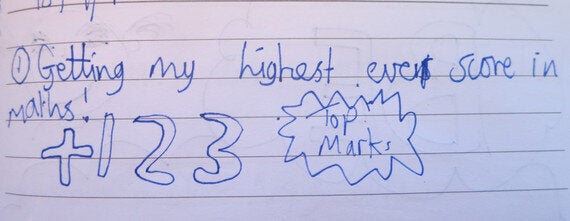 ① Getting my highest ever score in
maths!
+123
Top
Marks